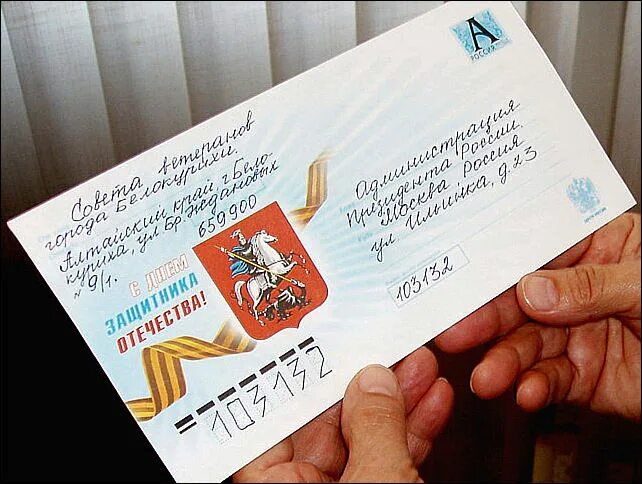 Совета ветеранов
города Белокурихи.
Алтайский край, г. Бело-
куриха, ул Бр. Ждановых
№ 9/1. 659900
С ДНЕМ
ЗАЩИТНИКА
ОТЕЧЕСТВА!
103132
А
РОССИЯ
Администрация
Президента России.
Москва Россия.
ул Ильинка, д. 23
103132